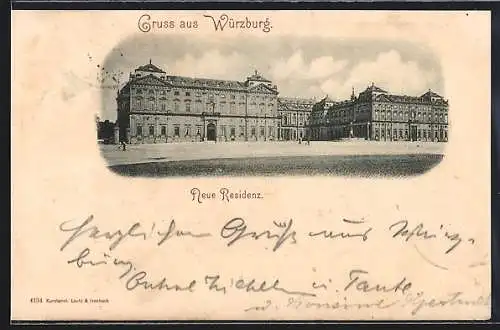 Gruss aus Würzburg.
Neue Residenz.
Herzlichen Gruß aus Würz-
burg
Onkel u. Tante
4104 Kunstanst. Lautz & Isenbeck